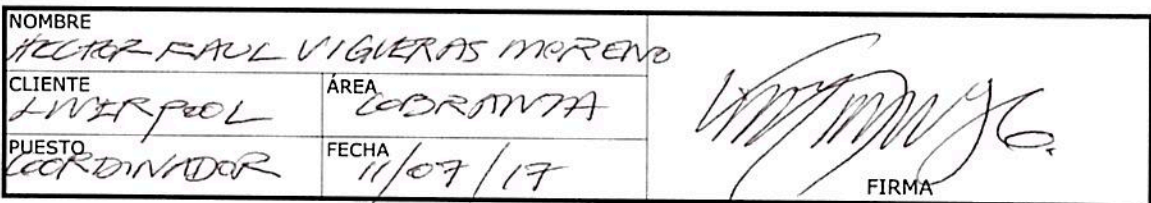 NOMBRE
HECTOR RAUL VIGUERAS MORENO
CLIENTE ÁREA
LIVERPOOL COBRANZA
PUESTO FECHA
COORDINADOR 11/07/17
FIRMA